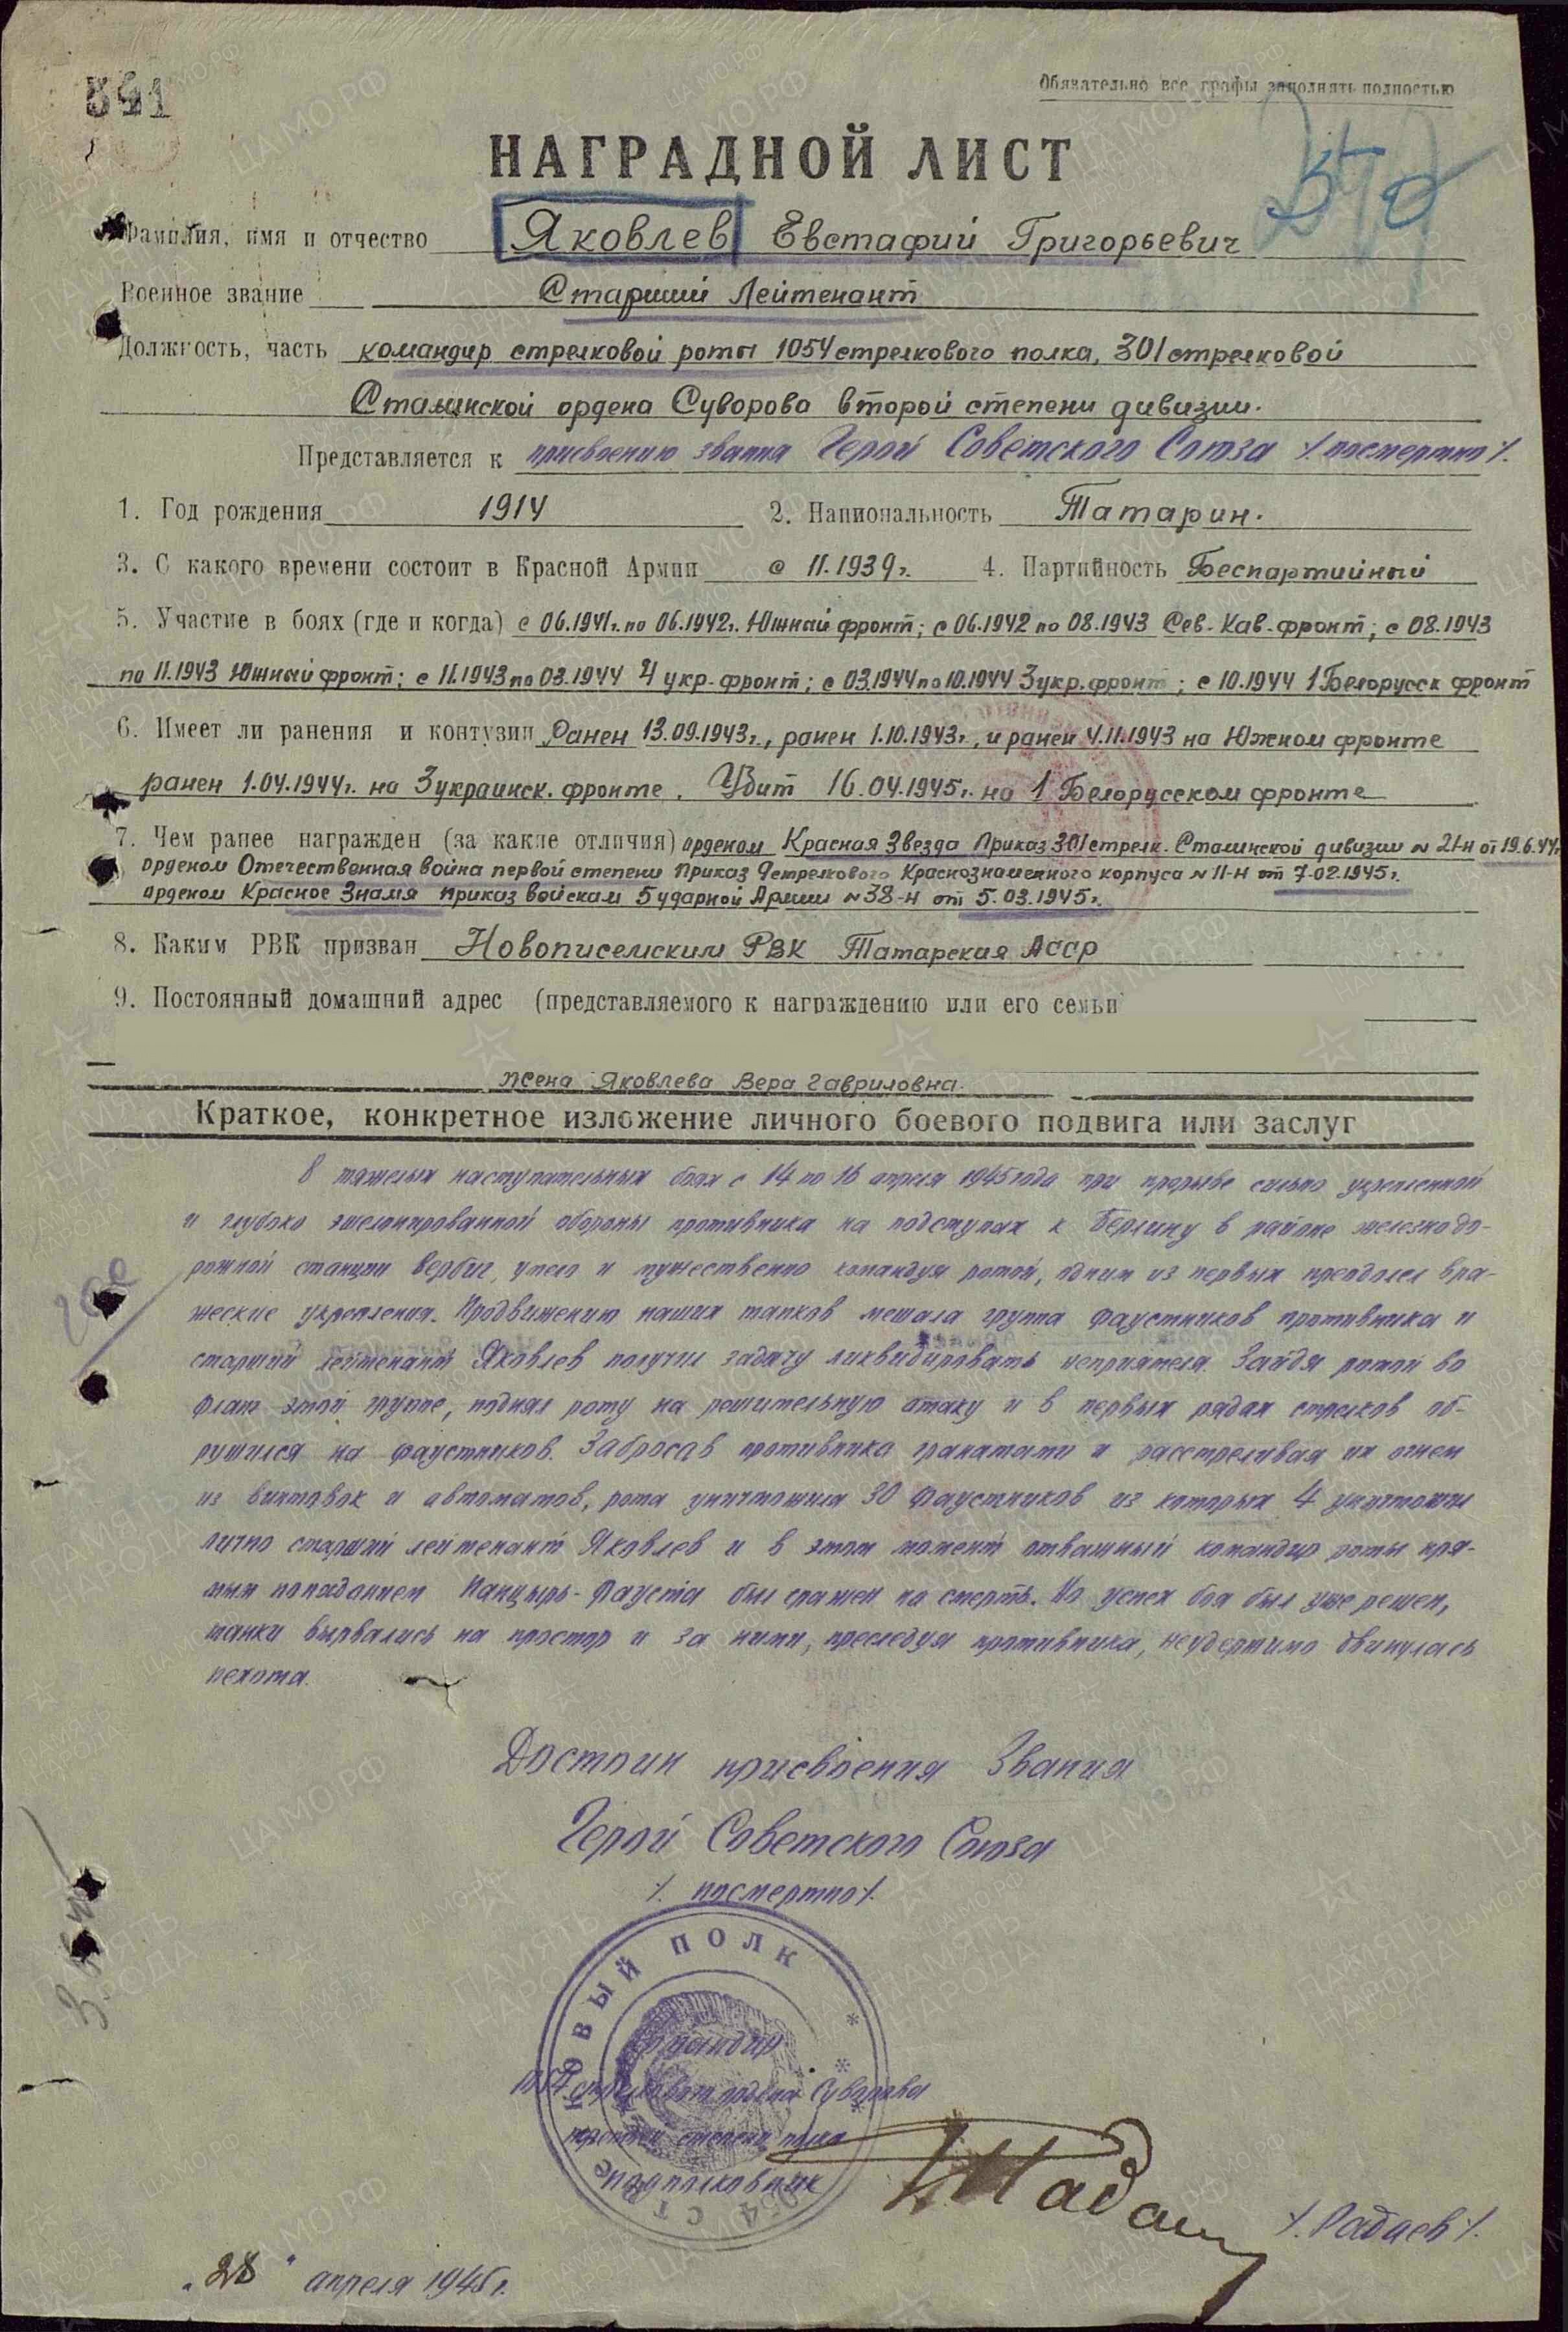 541
Обязательно все графы заполнять полностью
НАГРАДНОЙ ЛИСТ
Фамилия, имя и отчество Яковлев Евстафий Григорьевич
Военное звание Старший Лейтенант
Должность, часть командир стрелковой роты 1054 стрелкового полка, 301 стрелковой
Сталинской ордена Суворова второй степени дивизии.
Представляется к присвоению звания Герой Советского Союза /. посмертно /.
1. Год рождения 1914 2. Национальность Татарин.
3. С какого времени состоит в Красной Армии с 11.1939г. 4. Партийность Беспартийный
5. Участие в боях (где и когда) с 06.1941г. по 06.1942г. Южный фронт; с 06.1942 по 08.1943 Сев-Кав-фронт; с 08.1943
по 11.1943 Южный фронт; с 11.1943 по 03.1944 4 укр-фронт; с 03.1944 по 10.1944 3 укр. фронт; с 10.1944 1 Белорусск фронт
6. Имеет ли ранения и контузии Ранен 13.09.1943г., ранен 1.10.1943г., и ранен 4.11.1943 на Южном фронте
ранен 1.04.1944г. на 3 украинск. фронте. Убит 16.04.1945г. на 1 Белорусском фронте
7. Чем ранее награжден (за какие отличия) орденом Красная Звезда Приказ 301 стрелк. Сталинской дивизии № 21-н от 19.6.44г.
орденом Отечественная война первой степени Приказ 9 стрелкового Краснознаменного корпуса № 11-н от 7.02.1945г.
орденом Красное Знамя приказ войскам 5 ударной Армии № 38-н от 5.03.1945г.
8. Каким РВК призван Новописемским РВК Татарская АССР
9. Постоянный домашний адрес (представляемого к награждению или его семьи
жена Яковлева Вера Гавриловна.
Краткое, конкретное изложение личного боевого подвига или заслуг
В тяжелых наступательных боях с 14 по 16 апреля 1945 года при прорыве сильно укрепленной
и глубоко эшелонированной обороны противника на подступах к Берлину в районе железнодо-
рожной станции Вербиг, умело и мужественно командуя ротой, одним из первых преодолел вра-
жеские укрепления. Продвижению наших танков мешала группа фаустников противника и
старший лейтенант Яковлев получил задачу ликвидировать неприятеля. Зайдя ротой во
фланг этой группе, поднял роту на решительную атаку и в первых рядах стрелков об-
рушился на фаустников. Забросав противника гранатами и расстреливая их огнем
из винтовок и автоматов, рота уничтожила 30 фаустников из которых 4 уничтожил
лично старший лейтенант Яковлев и в этот момент отважный командир роты пря-
мым попаданием Панцырь-Фауста был сражен на смерть. Но успех боя был уже решен,
танки вырвались на простор и за ними, преследуя противника, неудержимо двинулась
пехота.
Достоин присвоения Звания
Герой Советского Союза
/. посмертно /.
1054 СТРЕЛКОВЫЙ ПОЛК
Командир
1054 стрелкового ордена Суворова
третьей степени полка
подполковник
/. Радаев /.
"28" апреля 1945г.